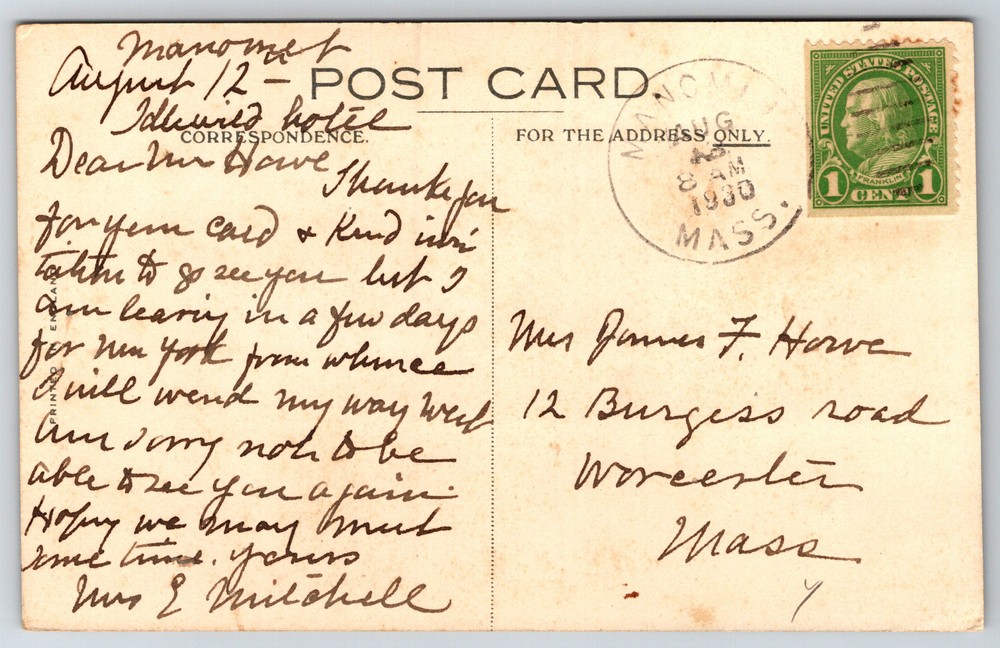 Manomet
August 12 –
POST CARD.
Idlewild hotel
CORRESPONDENCE.
FOR THE ADDRESS ONLY.
Dear Mrs Howe
Thanks for
for your card & Kind invi
tation to go see you but I
am leaving in a few days
for New York from whence
I will wend my way West
Am sorry not to be
able to see you again.
Hoping we may meet
some time. Yours
Mrs E Mitchell
PRINTED ENGLAND
MANOMET
AUG
8 AM
1930
MASS.
UNITED STATES POSTAGE
FRANKLIN
1 CENT 1
Mrs James F. Howe
12 Burgess road
Worcester
Mass